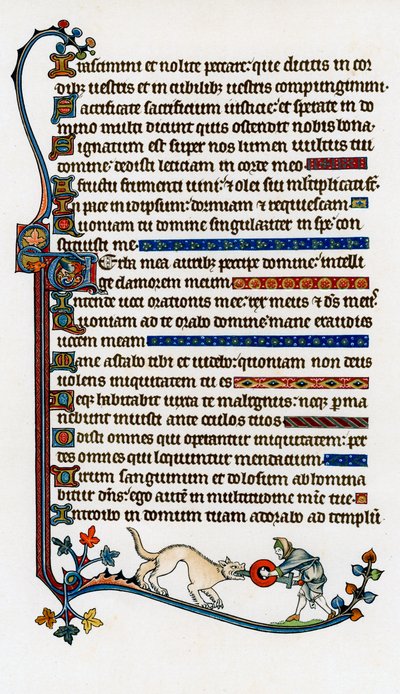 Irascimini et nolite peccare: que dicitis in cor
dibꝫ uestris et in cubilibꝫ uestris compungimini.
Sacrificate sacrificium iusticie: et sperate in do
mino multi dicunt quis ostendit nobis bona.
Signatum est super nos lumen uultus tui
domine: dedisti leticiam in corde meo.
A fructu frumenti uini: ⁊ olei sui mĺtiplicati st̄.
In pace in idipsum: dormiam ⁊ requiescam
Quoniam tu domine singulariter in spe: con
stituisti me.
Verba mea auribꝫ percipe domine: intelli
ge clamorem meum.
Intende uoci orationis mee: rex meus ⁊ d̄s me⁹.
Quoniam ad te orabo domine: mane exaudies
uocem meam
Mane astabo tibi et uidebo: quoniam non deus
uolens iniquitatem tu es
Neqꝫ habitabit iuxta te malignus: neqꝫ ꝑma
nebunt iniusti ante oculos tuos
Odisti omnes qui operantur iniquitatem: per
des omnes qui loquuntur mendacium
Uirum sanguinum et dolosum abhomina
bitur dn̄s: ego autē in multitudine mīe tue.
Introibo in domum tuam adorabo ad templū